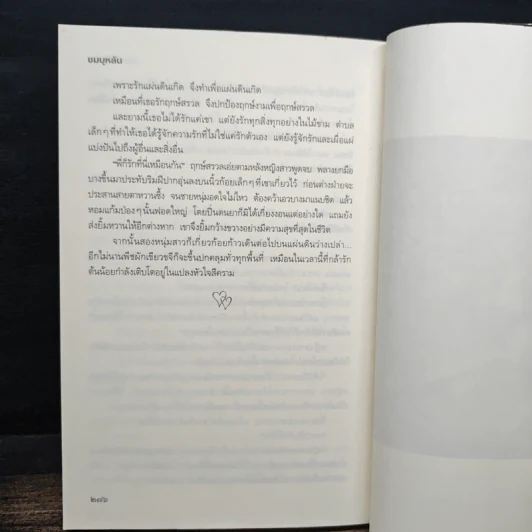 ชมบุหลัน
เพราะรักแผ่นดินเกิด จึงทำเพื่อแผ่นดินเกิด
เหมือนที่เธอรักฤกษ์สรวล จึงปกป้องฤกษ์งามเพื่อฤกษ์สรวล
และยามนี้เธอไม่ได้รักแค่เขา แต่ยังรักทุกสิ่งทุกอย่างในไม้ขาม ตำบล
เล็กๆ ที่ทำให้เธอได้รู้จักความรักที่ไม่ใช่แค่รักตัวเอง แต่ยังรู้จักรักและเผื่อแผ่
แบ่งปันไปถึงผู้อื่นและสิ่งอื่น
“พี่ก็รักที่นี่เหมือนกัน” ฤกษ์สรวลเอ่ยตามหลังหญิงสาวพูดจบ พลางยกมือ
บางขึ้นมาประทับริมฝีปากอุ่นลงบนนิ้วก้อยเล็กๆ ที่เขาเกี่ยวไว้ ก่อนต่างฝ่ายจะ
ประสานสายตาหวานซึ้ง จนชายหนุ่มอดใจไม่ไหว ต้องคว้าเอวบางมาแนบชิด แล้ว
หอมแก้มป่องๆ นั้นฟอดใหญ่ โดยปิ่นตนยาก็มิได้เกี่ยงงอนแต่อย่างใด แถมยัง
ส่งยิ้มหวานให้อีกต่างหาก เขาจึงยิ้มกว้างขวางอย่างมีความสุขที่สุดในชีวิต
จากนั้นสองหนุ่มสาวก็เกี่ยวก้อยก้าวเดินต่อไปบนแผ่นดินว่างเปล่า...
อีกไม่นานพืชผักเขียวขจีก็จะขึ้นปกคลุมทั่วทุกพื้นที่ เหมือนในเวลานี้ที่กล้ารัก
ต้นน้อยกำลังเติบโตอยู่ในแปลงหัวใจสีคราม